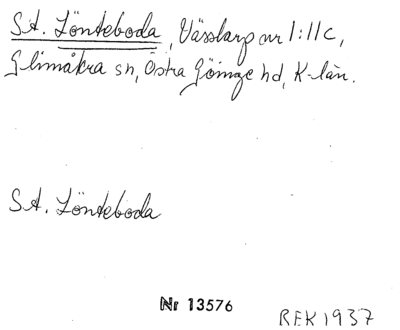 St. Lönteboda, Vässlarp nr 1:11c,
Glimåkra sn, Östra Göinge hd, K-län.
St. Lönteboda
Nr 13576
REK 1937